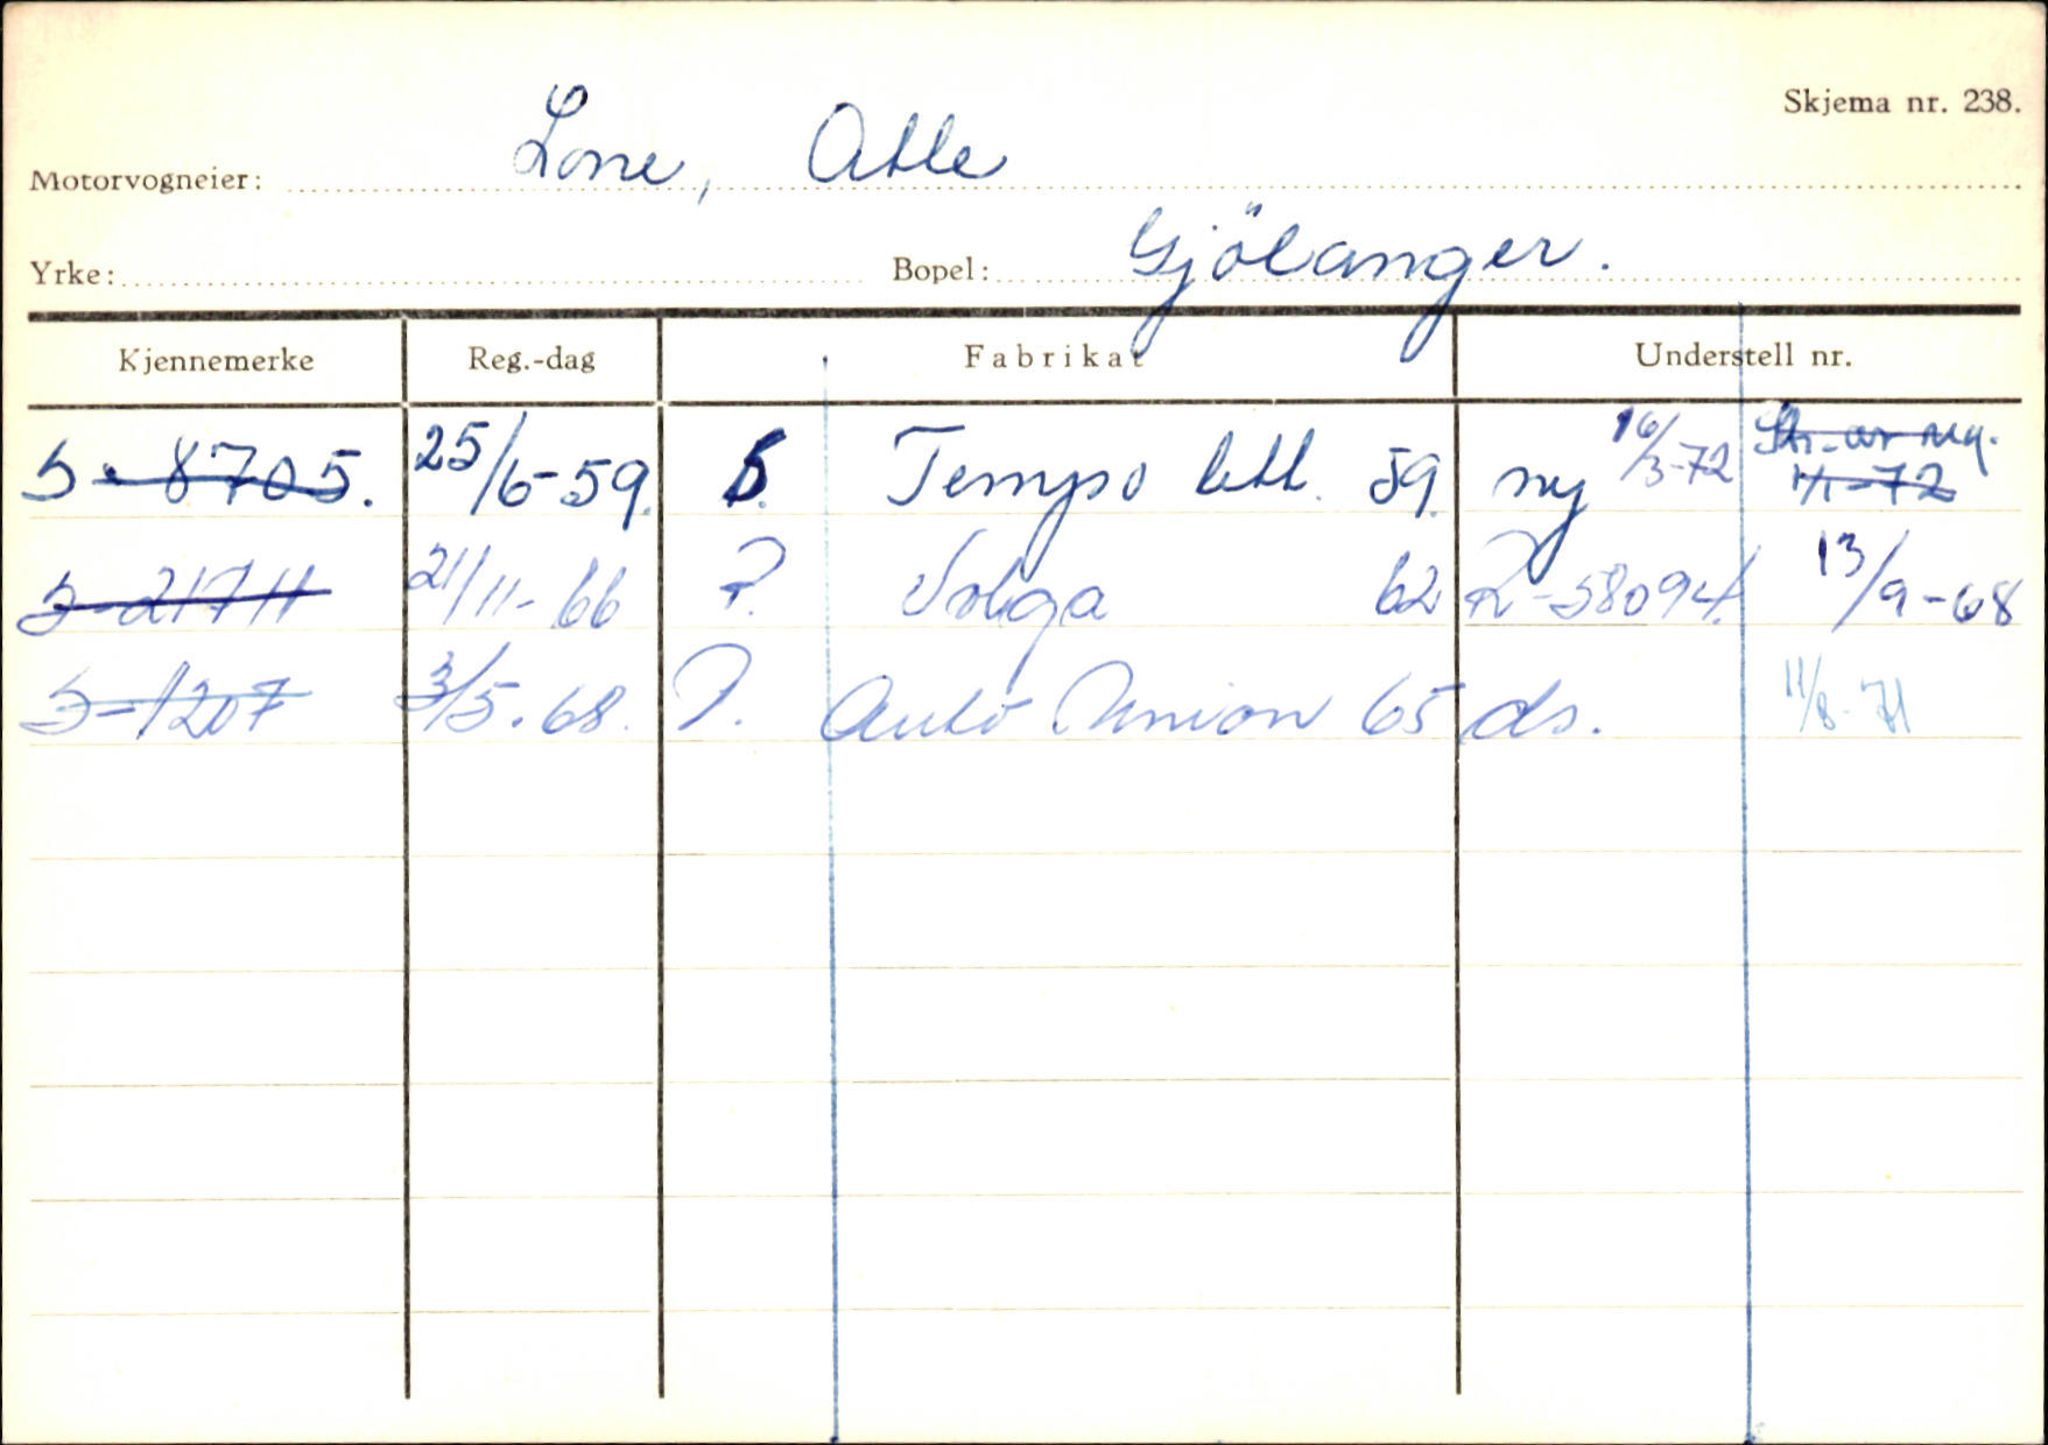 Skjema nr. 238.
Motorvogneier: Lone, Atle
Yrke: Bopel: Gjölanger.
Kjennemerke Reg.-dag Fabrikat Understell nr.
S-8705. 25/6-59. S. Tempo lett. 59. ny 16/3-72 Str. av reg. 1/1-72
S-21711 21/11-66 P. Volga 62 R-58094. 13/9-68
S-1207 3/5-68. P. Auto Union 65 ds. 11/8-71